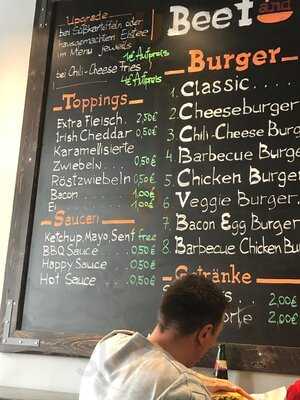 Upgrade
bei Süßkartoffeln oder
hausgemachtem Eistee
im Menü jeweils
1€ Aufpreis
bei Chili-Cheese Fries
4€ Aufpreis
Toppings
Extra Fleisch 2,50€
Irish Cheddar 0,50€
Karamellisierte
Zwiebeln 0,50€
Röstzwiebeln 0,50€
Bacon 1,00€
Ei 1,00€
Saucen
Ketchup, Mayo, Senf free
BBQ Sauce 0,50€
Happy Sauce 0,50€
Hot Sauce 0,50€
Beef and
Burger
1. Classic
2. Cheeseburger
3. Chili-Cheese Burger
4. Barbecue Burger
5. Chicken Burger
6. Veggie Burger
7. Bacon Egg Burger
8. Barbecue Chicken Bu
Getränke
2,00€
2,00€